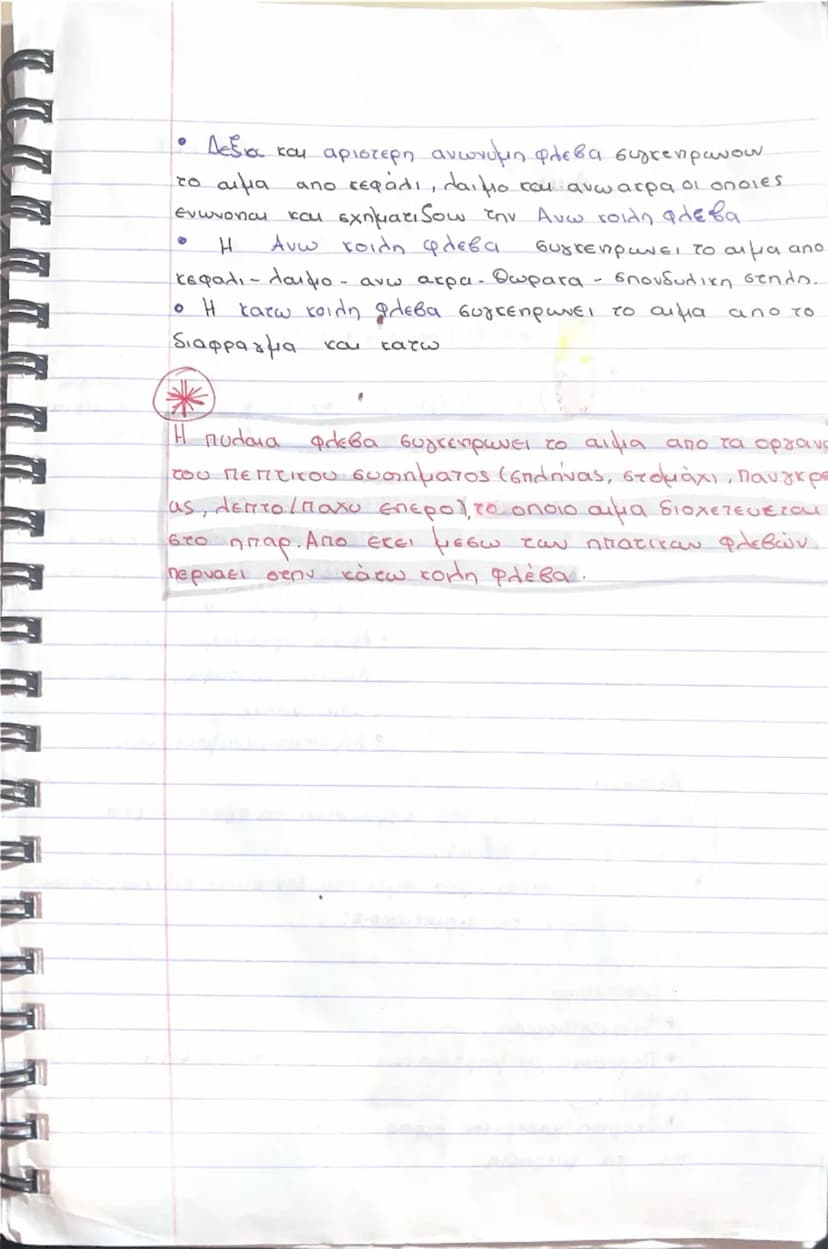 • Δεξια και αριστερη ανωνυμη φλεβα συγκεντρωνουν
το αιμα απο κεφαλι, λαιμο και ανω ακρα οι οποιες
ενωνονται και σχηματιζουν την Ανω κοιλη φλεβα
• Η Ανω κοιλη φλεβα συγκεντρωνει το αιμα απο
κεφαλι - λαιμο - ανω ακρα - θωρακα - σπονδυλικη στηλη.
• Η κατω κοιλη φλεβα συγκεντρωνει το αιμα απο το
διαφραγμα και κατω
Η πυλαια φλεβα συγκεντρωνει το αιμα απο τα οργανα
του πεπτικου συστηματος (σπλήνας, στομάχι, παγκρε
ας, λεπτο/παχυ εντερο), το οποιο αιμα διοχετευεται
στο ηπαρ. Απο εκει μεσω των ηπατικων φλεβών
περναει στην κάτω κοιλη φλέβα.